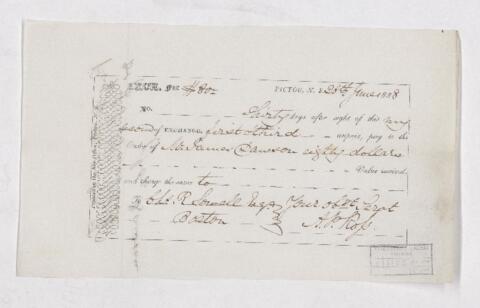 EXCH. FOR $80 – PICTOU, N. S. 28th June 1838
No. Thirty days after sight of this my
second of EXCHANGE, first & third unpaid, pay to the
Order of Mr James Dawson eighty dollars
Value received
and charge the same to
To Chs. R Lowell Esqr Your obdt Servt
Boston A. P. Ross